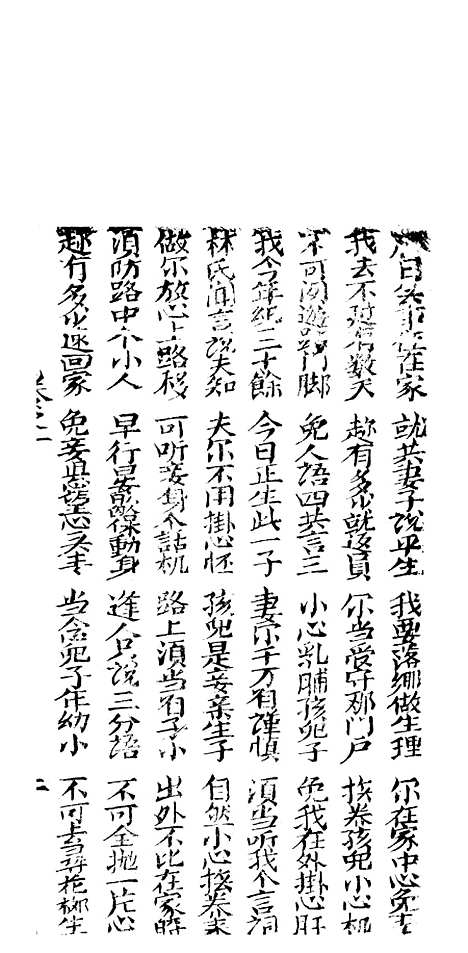 日無事在在家 就共妻子說平生 我要落鄉做生理 尔在家中心免
我去不过有数天 趁有多少就返員 尔当受守那門戶 挨养孩兒小心机
不可闲遊踏門脚 免人語四共言三 小心乳哺孩兒子 免我在外掛心肝
我今年紀三十餘 今日正生此一子 妻尔千万有謹慎 須当听我个言詞
林氏闻言說夫知 夫尔不用掛心怀 孩兒是妾亲生子 自然小心挨养
做尔放心上路移 可听妾身个話机 路上須当有子小 出外不比在家時
須防路中个小人 早行晏歇保動身 逢人只說三分語 不可全抛一片心
趁有多少速回家 免妾思望心 当念兒子年幼小 不可去当尋花柳
卷之一 二